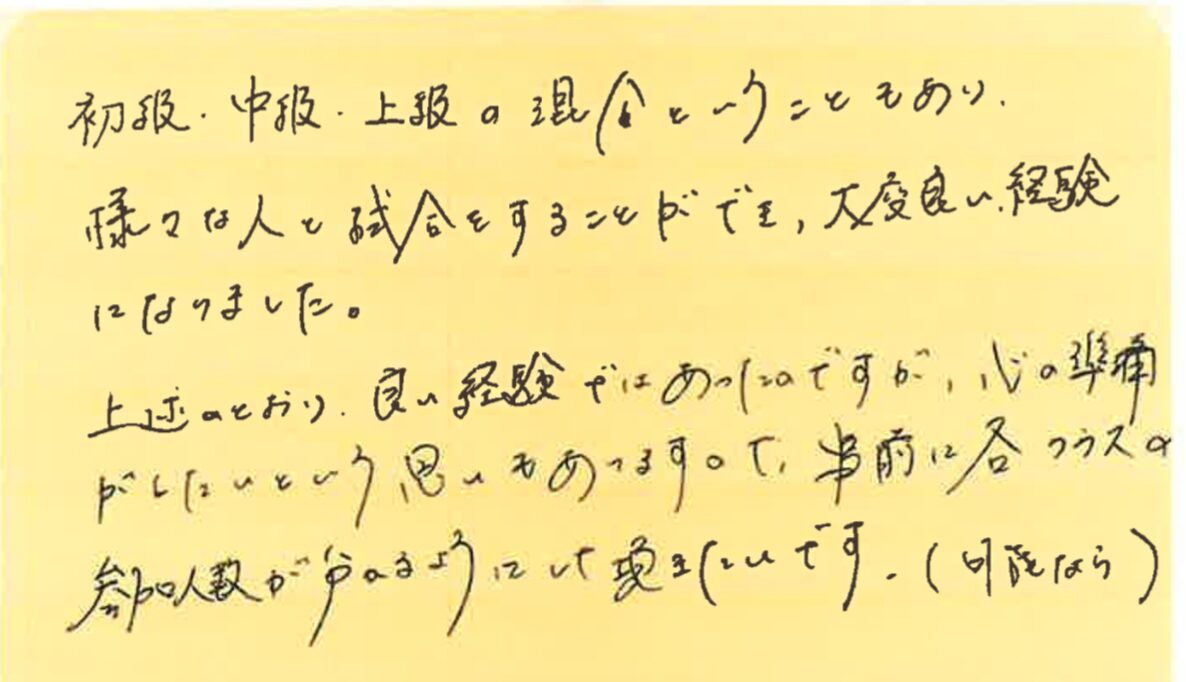 初級・中級・上級の混合ということもあり、
様々な人と試合をすることができ、大変良い経験
になりました。
上述のとおり、良い経験ではあったのですが、心の準備
がしたいという思いもありますので、事前に各クラスの
参加人数が分かるようにして頂きたいです。(可能なら)